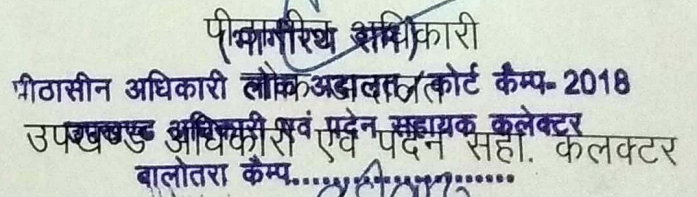 पीठासीन अधिकारी
(भागीरथ राम)
पीठासीन अधिकारी लोक अदालत/कोर्ट कैम्प-2018
उपखण्ड अधिकारी एवं पदेन सहायक कलेक्टर
उपखण्ड अधिकारी एवं पदेन सहा. कलक्टर
बालोतरा कैम्प..................